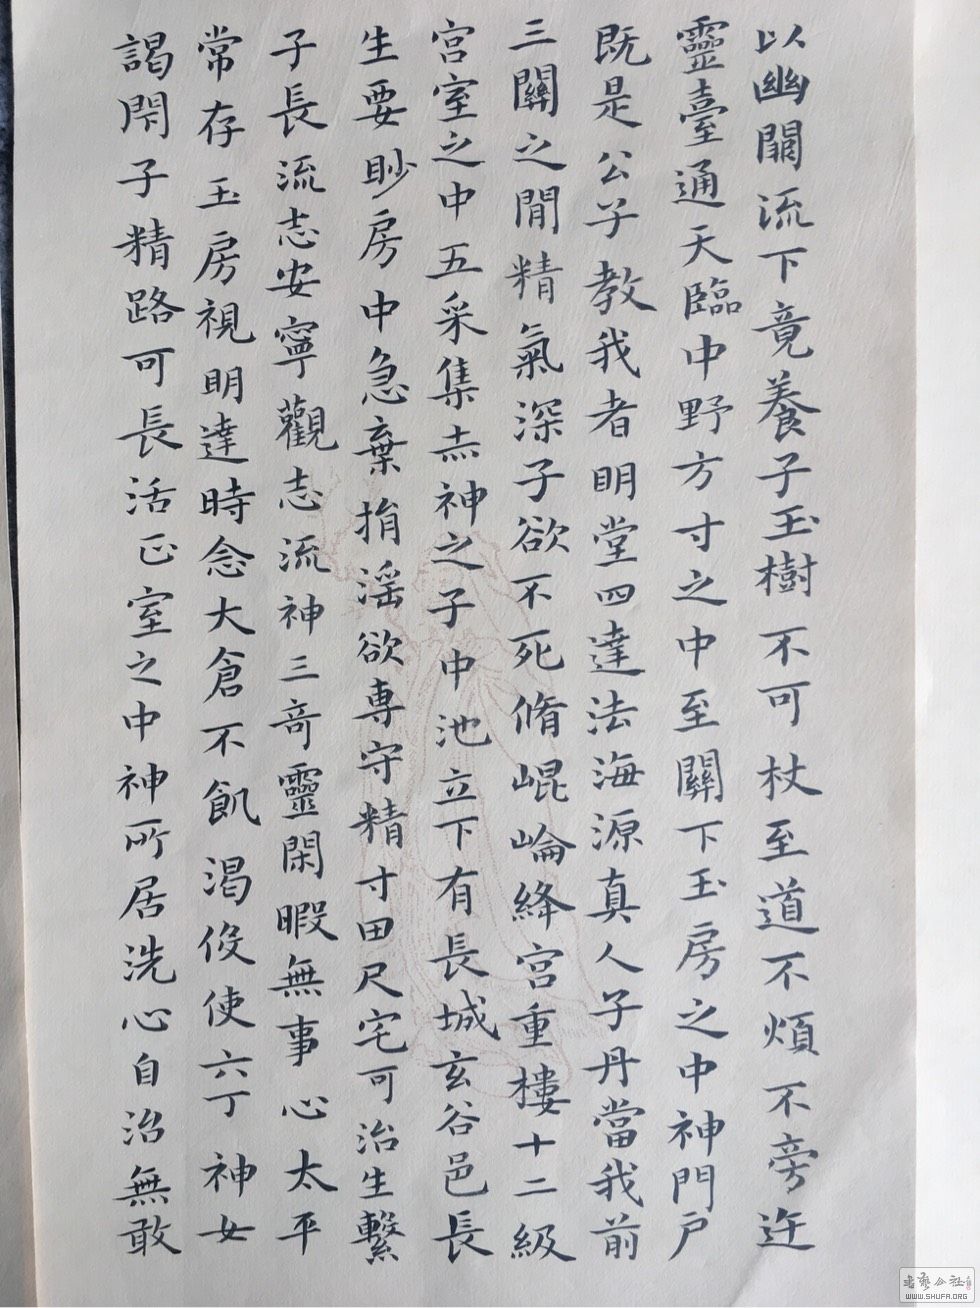 以幽關流下竟養子玉樹不可杖至道不煩不旁迕
靈臺通天臨中野方寸之中至關下玉房之中神門户
既是公子教我者明堂四達法海源真人子丹當我前
三關之間精氣深子欲不死脩崐崘絳宫重樓十二級
宫室之中五采集赤神之子中池立下有長城玄谷邑長
生要眇房中急棄捐滛欲専守精寸田尺宅可治生繫
子長流志安寧觀志流神三奇靈閑暇無事心太平
常存玉房視明達時念大倉不飢渴伇使六丁神女
謁閇子精路可長活正室之中神所居洗心自治無敢
書藝公社
WWW.SHUFA.ORG